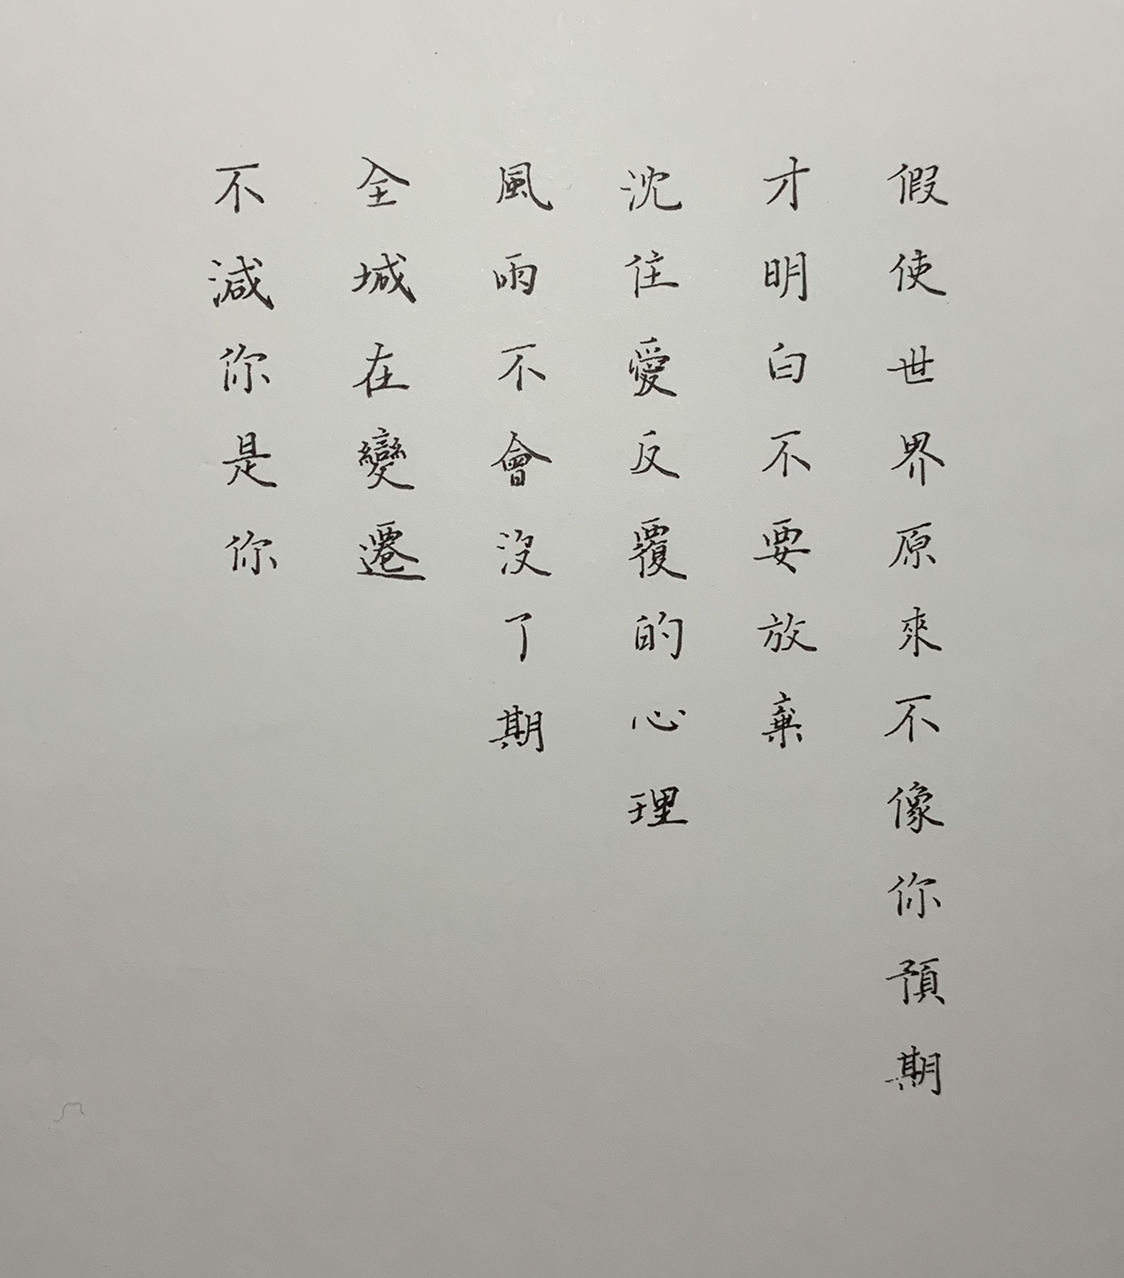 假使世界原來不像你預期
才明白不要放棄
沈住愛反覆的心理
風雨不會沒了期
全城在變遷
不減你是你